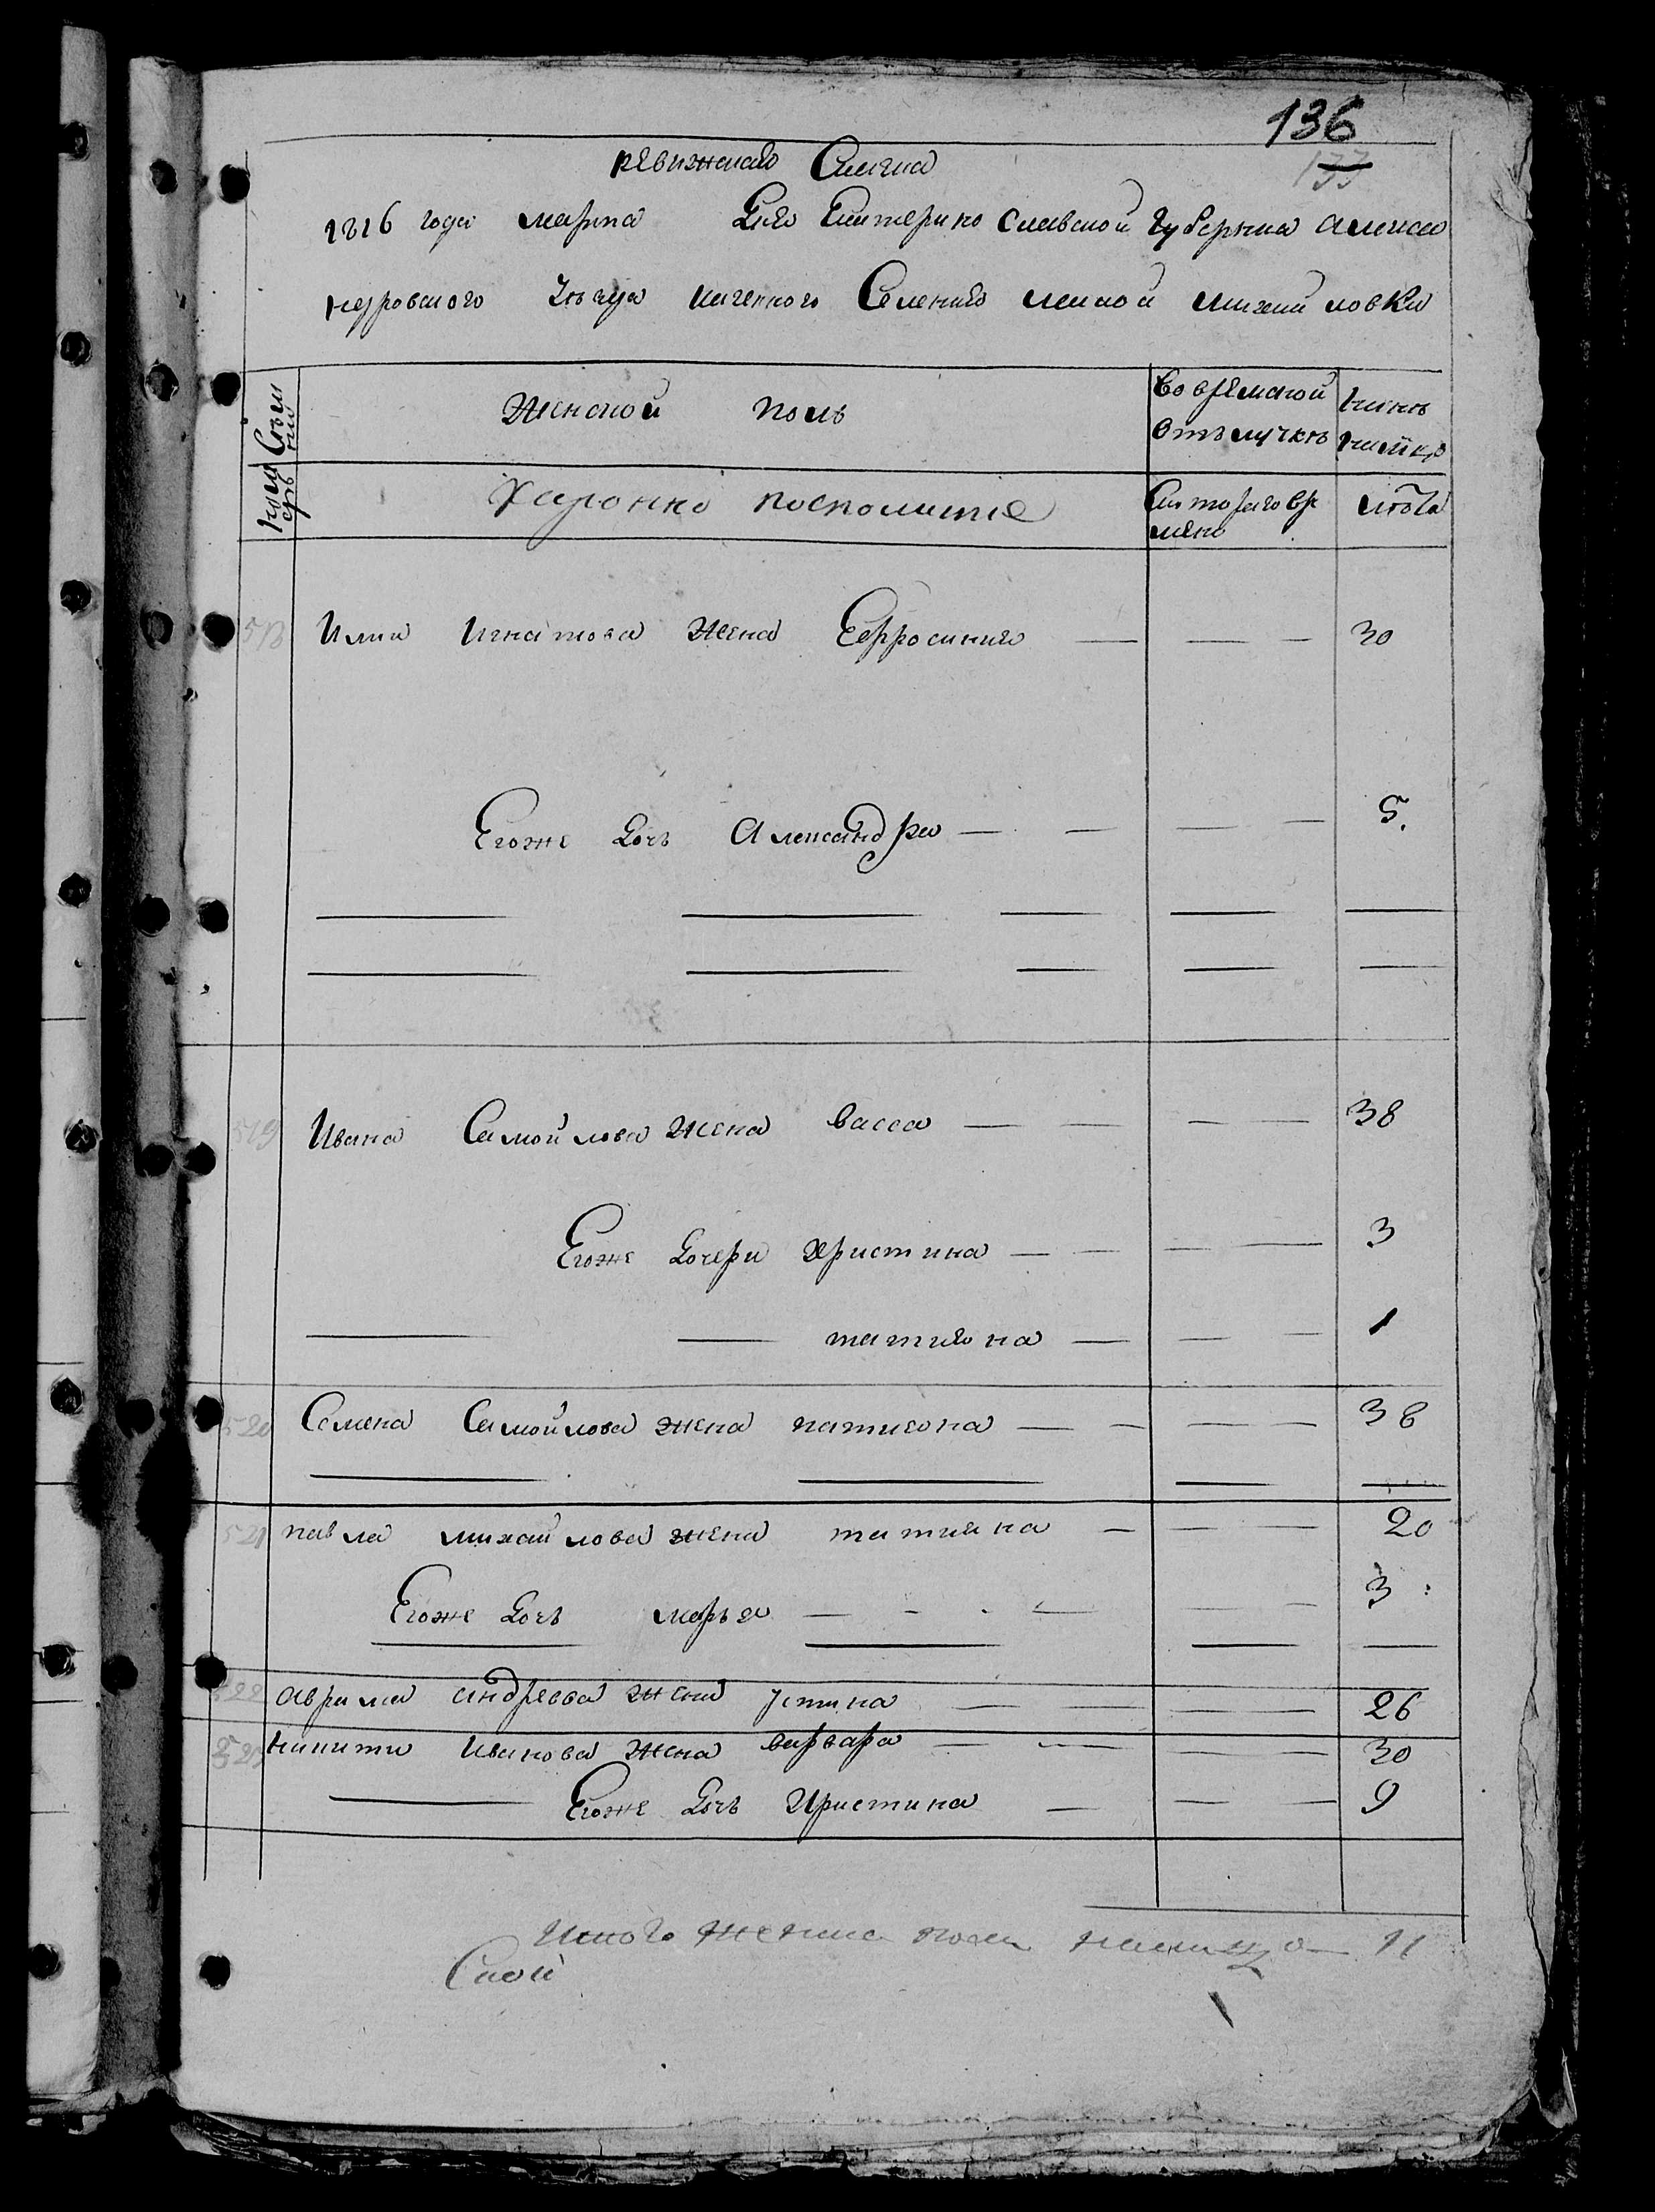 136
133
ревижская Сказка
1816 года марта дня Екатеринославской губернии Алексан
недровского уезда казенного Селения малой михайловки
Семьи
Женской полъ
Во временной
отълучкѣ
Нынѣ
налицо
номеръ
посполитые
Съ котораго вре
мени
лѣта
518 Илии Игнатова жена Ефросиния 30
Егоже дочь Александра 5.
519 Ивана Самойлова жена васса 38
Егоже дочери христина 3
татияна 1
520 Семена Самойлова жена татияна 38
521 павла михайлова жена татияна 20
Егоже дочь марья 3
522 аврама андреева жена устина 26
523 никиты Иванова жена варвара 30
Егоже дочь христина 9
Итого женска пола налицо 11